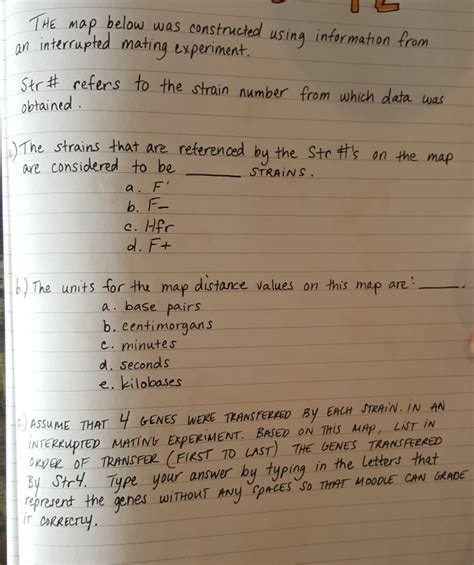 THE map below was constructed using information from
an interrupted mating experiment.
Str# refers to the strain number from which data was
obtained.
a.) The strains that are referenced by the Str #'s on the map
are considered to be ______ STRAINS.
a. F'
b. F-
c. Hfr
d. F+
b.) The units for the map distance values on this map are: ______.
a. base pairs
b. centimorgans
c. minutes
d. seconds
e. kilobases
c.) ASSUME THAT 4 GENES WERE TRANSFERRED BY EACH STRAIN. IN AN
INTERRUPTED MATING EXPERIMENT. BASED ON THIS MAP, LIST IN
ORDER OF TRANSFER (FIRST TO LAST) THE GENES TRANSFERRED
By Str4. Type your answer by typing in the letters that
represent the genes WITHOUT ANY SPACES SO THAT MOODLE CAN GRADE
IT CORRECTLY.